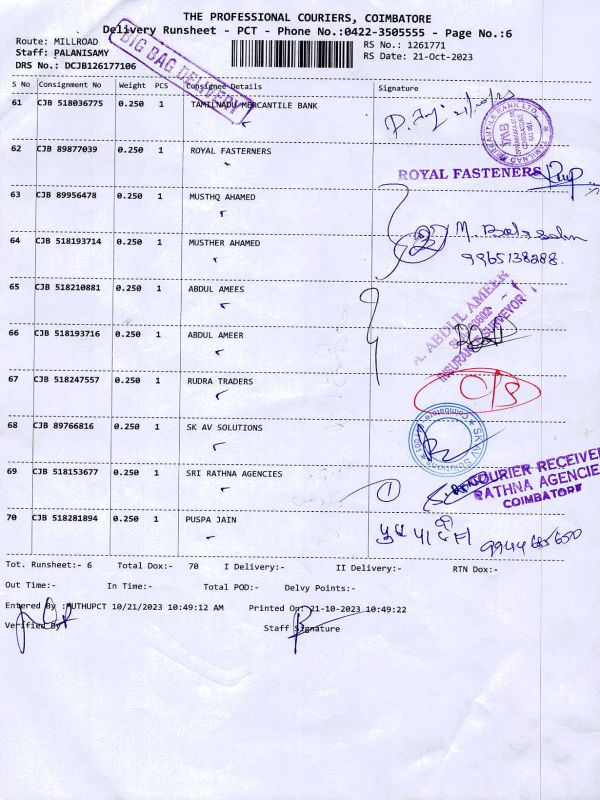 THE PROFESSIONAL COURIERS, COIMBATORE
Delivery Runsheet - PCT - Phone No.:0422-3505555 - Page No.:6
Route: MILLROAD
RS No.: 1261771
Staff: PALANISAMY
RS Date: 21-Oct-2023
DRS No.: DCJB126177106
BIG BAG DELIVERY
S No Consignment No Weight PCS Consignee Details Signature
61 CJB 518036775 0.250 1 TAMILNADU MERCANTILE BANK
62 CJB 89877039 0.250 1 ROYAL FASTERNERS
ROYAL FASTENERS
63 CJB 89956478 0.250 1 MUSTHQ AHAMED
64 CJB 518193714 0.250 1 MUSTHER AHAMED
9965138288.
65 CJB 518210881 0.250 1 ABDUL AMEES
A. ABDUL AMEER
INSURANCE SURVEYOR
66 CJB 518193716 0.250 1 ABDUL AMEER
67 CJB 518247557 0.250 1 RUDRA TRADERS
O/S
68 CJB 89766816 0.250 1 SK AV SOLUTIONS
69 CJB 518153677 0.250 1 SRI RATHNA AGENCIES
1
COURIER RECEIVED
RATHNA AGENCIES
COIMBATORE
70 CJB 518281894 0.250 1 PUSPA JAIN
Tot. Runsheet:- 6 Total Dox:- 70 I Delivery:- II Delivery:- RTN Dox:-
Out Time:- In Time:- Total POD:- Delvy Points:-
Entered By :MUTHUPCT 10/21/2023 10:49:12 AM Printed On: 21-10-2023 10:49:22
Verified By
Staff Signature